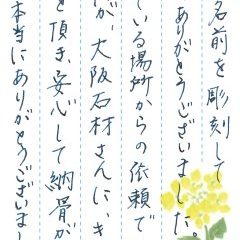 名前を彫刻して
ありがとうございました。
ている場所からの依頼で
が、大阪石材さんに、き
を頂き、安心して納骨が
本当にありがとうございまし